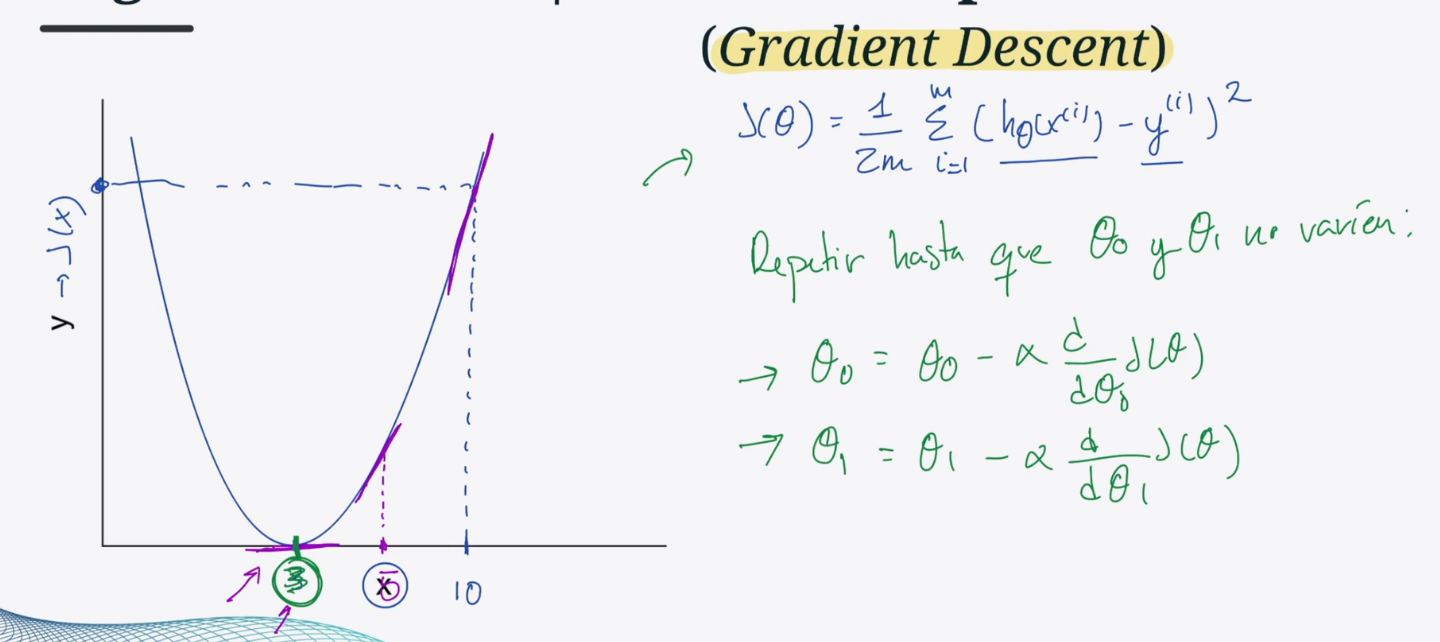 (Gradient Descent)
J(θ) = 1/2m Σ_{i=1}^{m} (hθ(x^(i)) - y^(i))^2
Repetir hasta que θ0 y θ1 no varíen:
→ θ0 = θ0 - α d/dθ0 J(θ)
→ θ1 = θ1 - α d/dθ1 J(θ)
y → J(x)
3
x 5
10